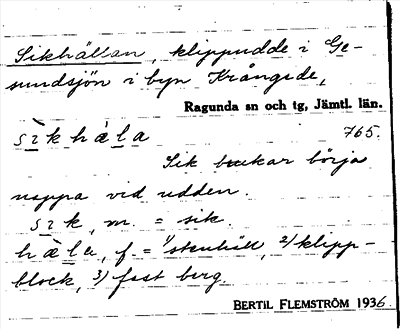 Sikhällan, klippudde i Ge-
sundsjön i byn Krångede,
Ragunda sn och tg, Jämtl. län.
sìkhàla 765.
Sik brukar börja
nappa vid udden.
sik, m. = sik.
hàla, f. = 1/stenhäll, 2/klipp-
block, 3/fast berg.
BERTIL FLEMSTRÖM 1936.